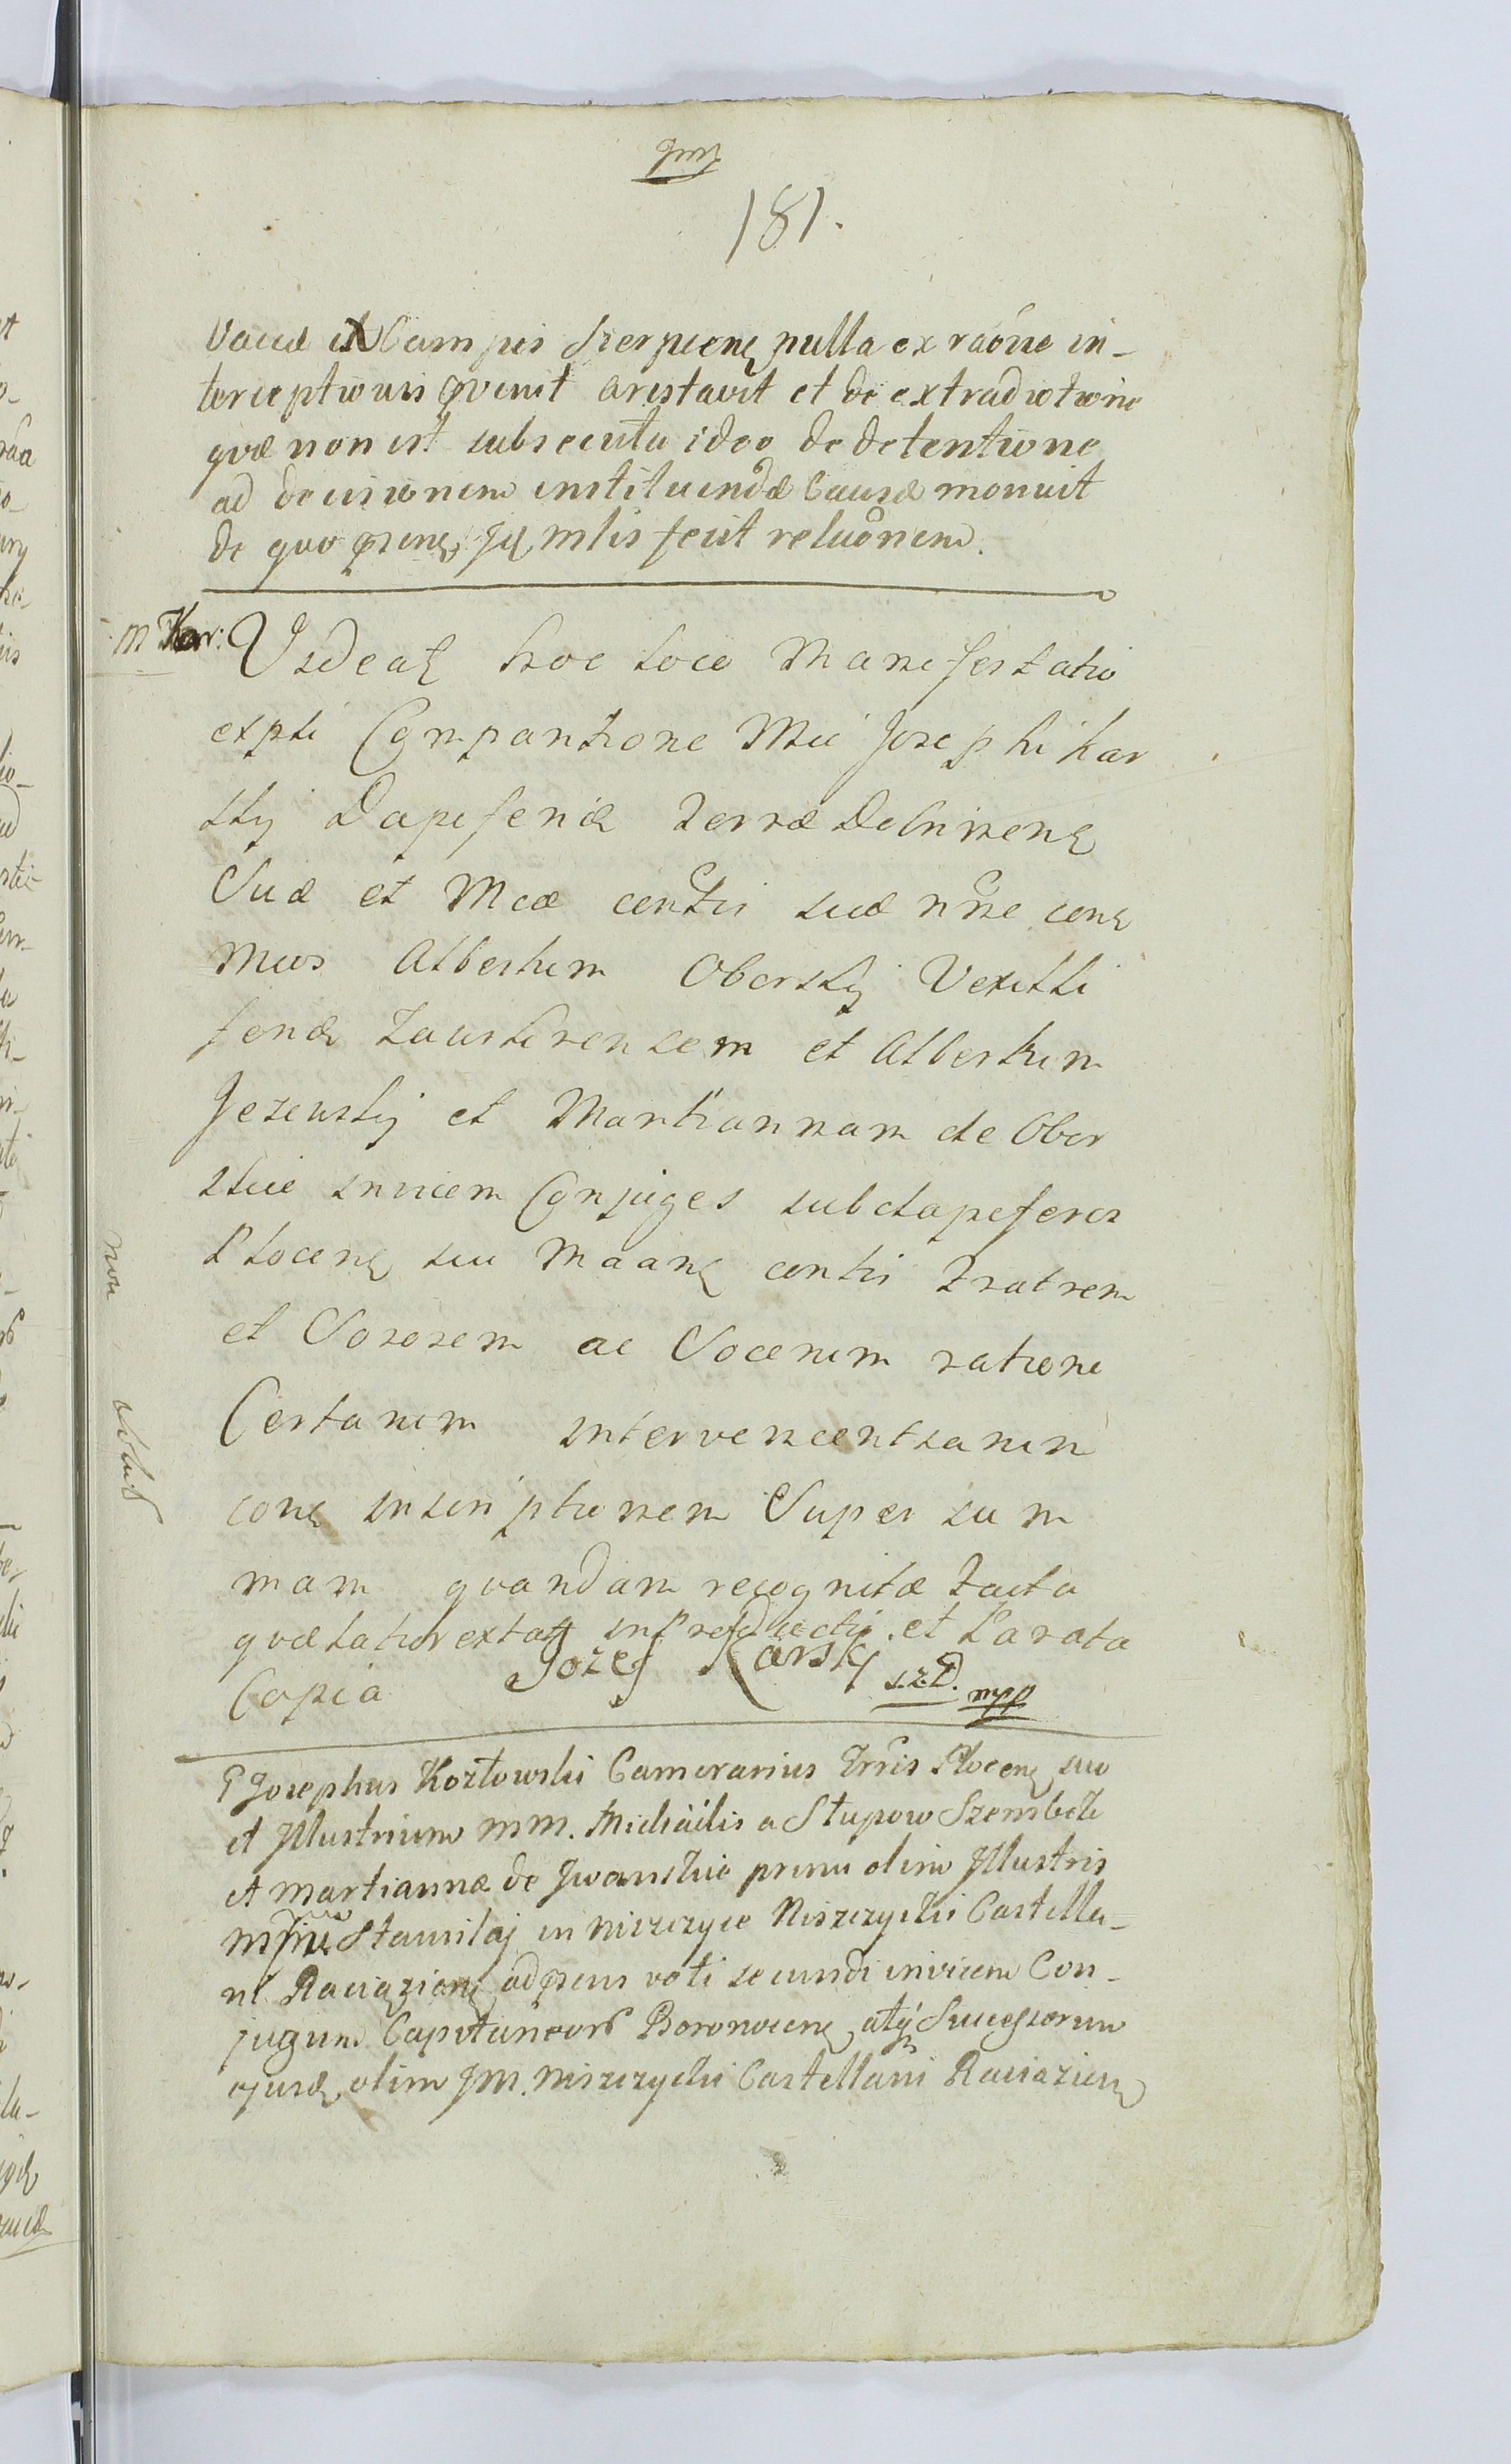 181.
Vacca ex Campis Sierpcens nulla ex raōne in-
terceptionis qvenit arestavit et de extradictione
quæ non est subsecuta ideo de detentione
ad decisionem instituendæ Causæ monuit
de quo præns Jg mlis fecit relaōnem.
M Kar: Videat hoc loco Manifestatio
expti Compantione Mci Josephi Kar
skij Dapiferidæ Terræ Dobrinens
Suæ et Mcæ contis suæ nōe cons
Mcos Albertum Oberskij Vexilli
ferid Zauskrensem et Albertum
Jezewskij et Martiannam de Ober
skie invicem Conjuges subdapiferos
Plocens suu Maans contis Fratrem
et Sororem ac Socerum ratione
Certarum intervenientiarum
cons inscriptionem Super sum
mam quandam recognitæ facta
quæ latior extat in Protudutis et Parata
Copia Jozef Karskj S.Z.D. mpp
non
G Josephus Kozłowski Camerarius Trris Plocens suo
et Jllustrium MM. Michaelis a Słupow Szembek
et Martiannæ de Jwanskie primi olim Jllustris
Stanislaj in Niszczyce Niszczycki Castella-
ni Raciąziens ad præns voti secundi invicem Con-
jugum Capitaneor Boronicens atq Successorum
ejusd olim JM. Niszczycki Castellani Raciaziens